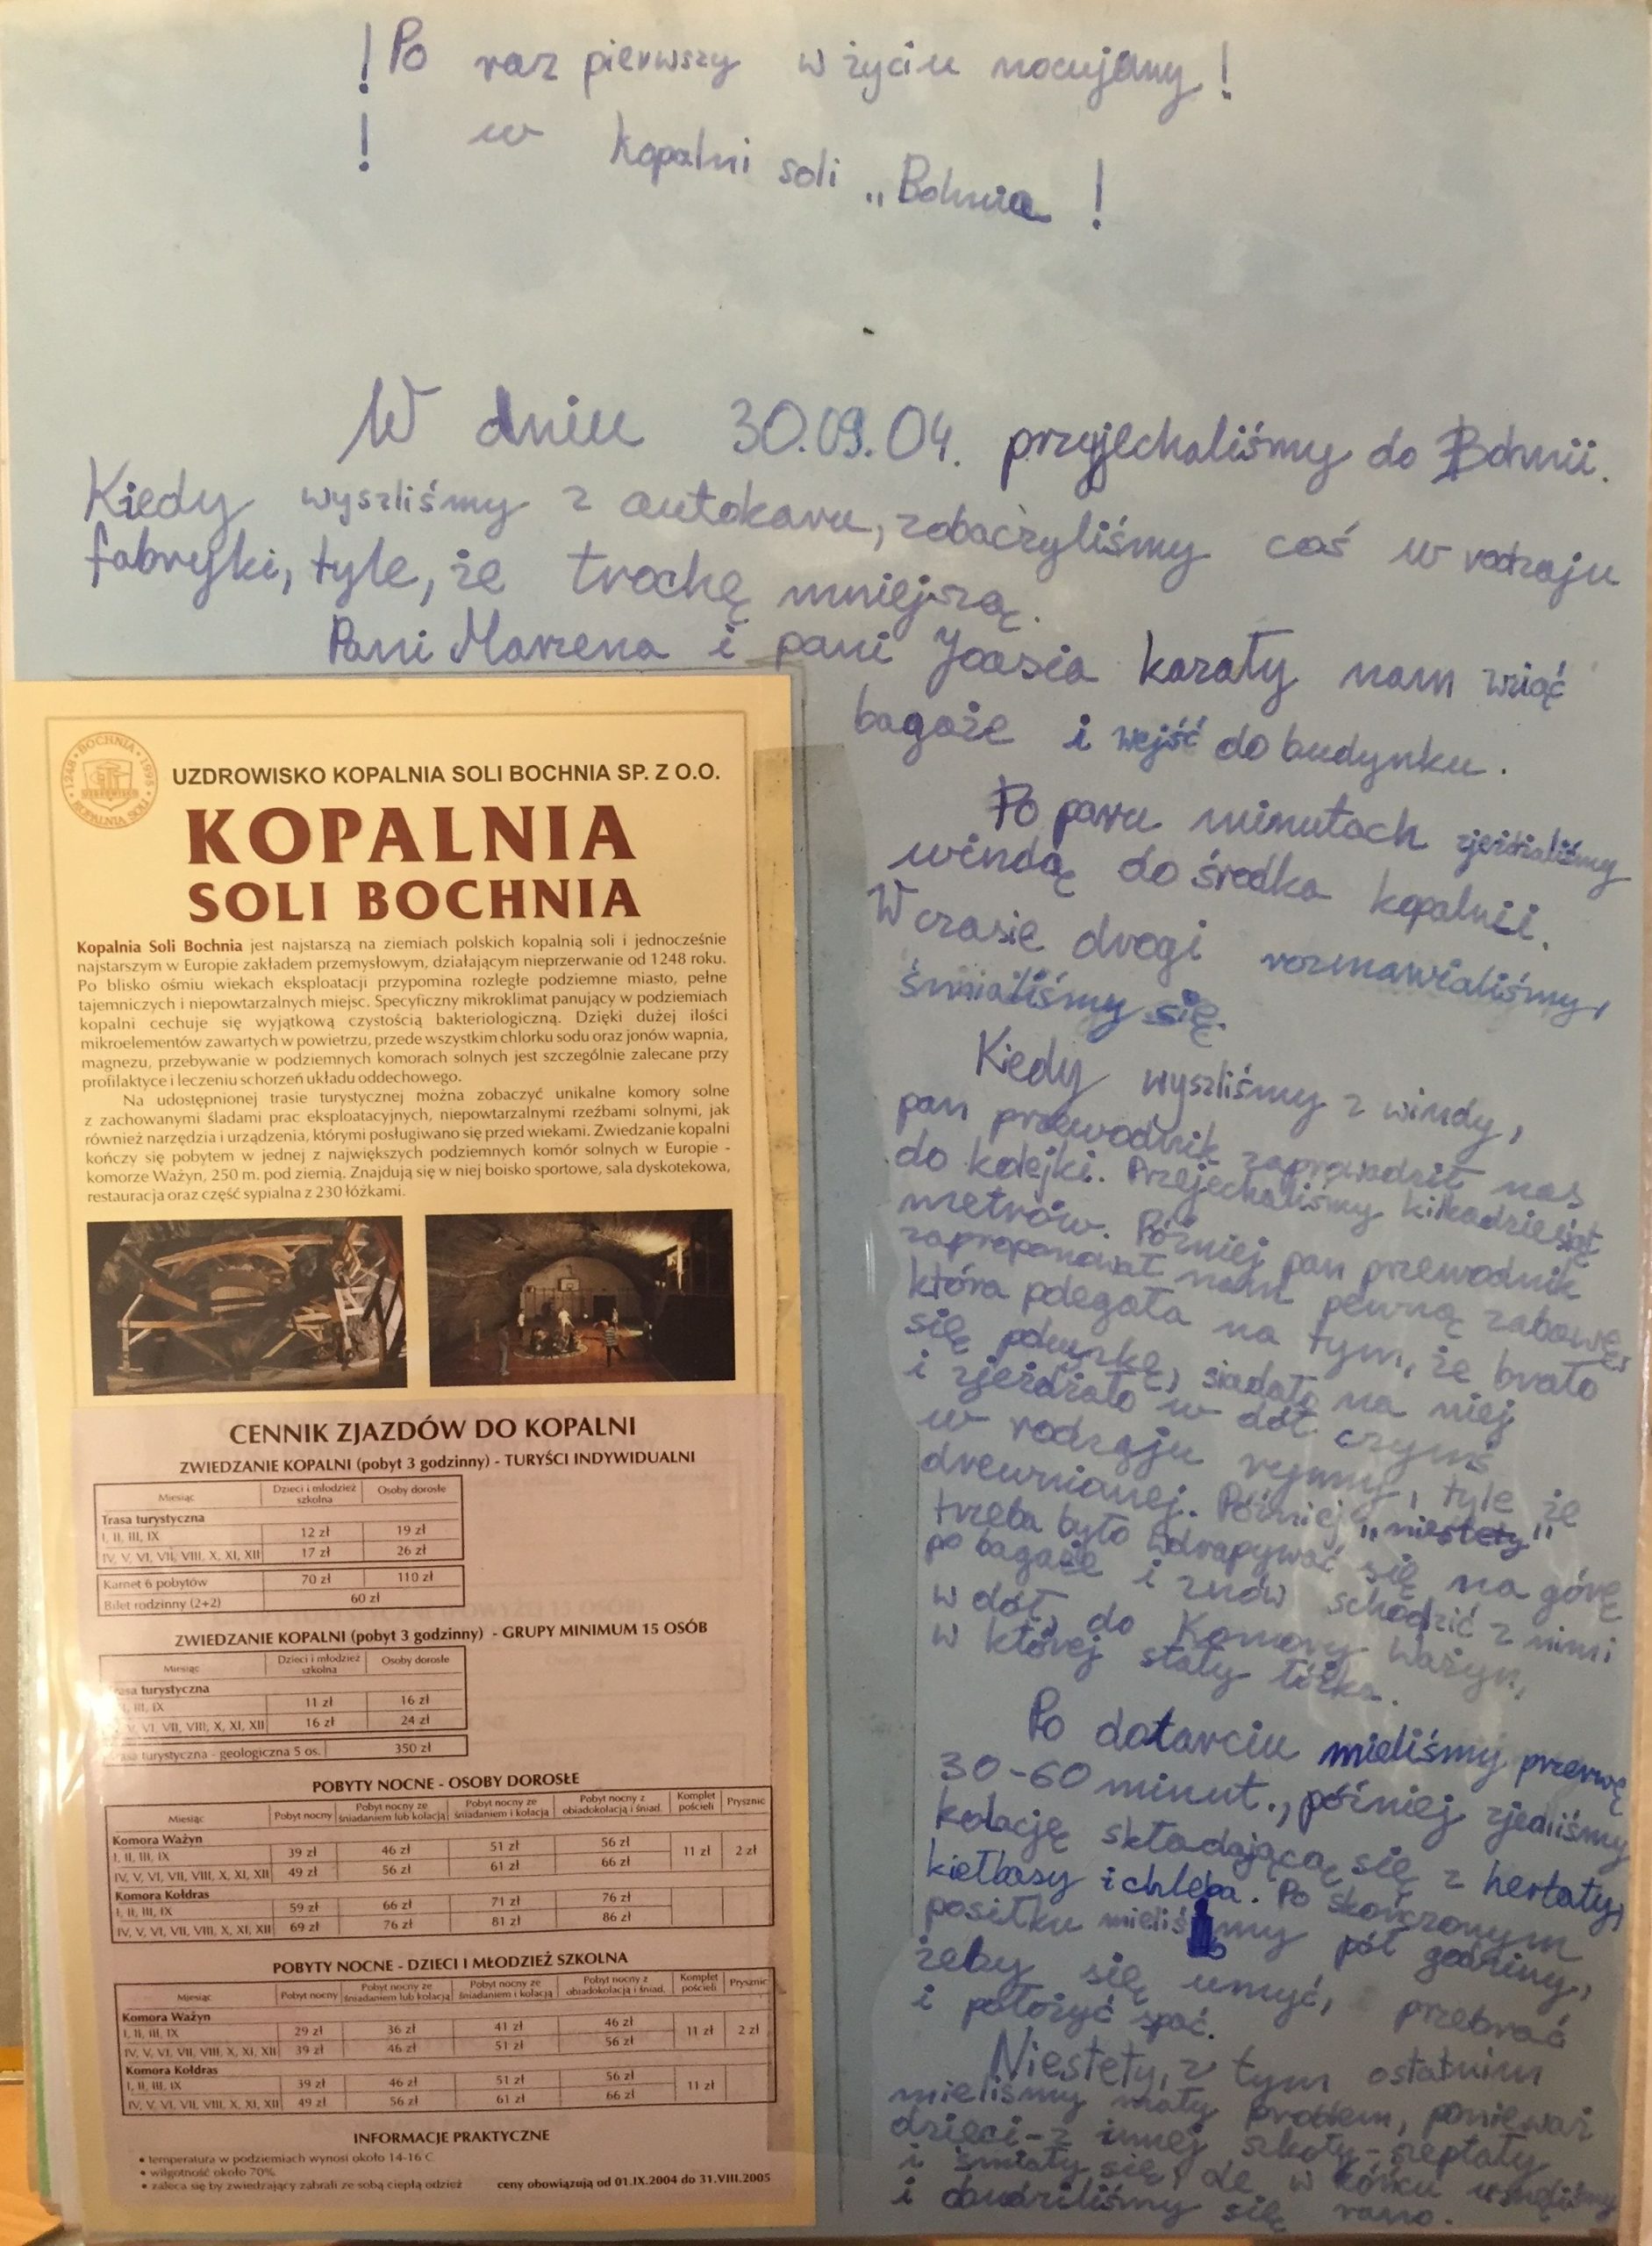 ! Po raz pierwszy w życiu nocujemy !
! w kopalni soli „Bohnia !
W dniu 30.09.04. przyjechaliśmy do Bohnii.
Kiedy wyszliśmy z autokaru, zobaczyliśmy coś w rodzaju
fabryki, tyle, że trochę mniejszą.
Pani Marzena i pani Joasia kazały nam wziąć
bagaże i wejść do budynku.
Po paru minutach zjeżdżaliśmy
windą do środka kopalnii.
W czasie drogi rozmawialiśmy,
śmialiśmy się.
Kiedy wyszliśmy z windy,
pan przewodnik zaprowadził nas
do kolejki. Przejechaliśmy kilkadziesiąt
metrów. Później pan przewodnik
zaproponował nam pewną zabawę,
która polegała na tym, że brało
się poduszkę, siadało na niej
i zjeżdżało w dół czymś
w rodzaju rynny, tyle że
drewnianej. Później „niestety”
trzeba było wdrapywać się na górę
po bagaże i znów schodzić z nimi
w dół, do Komory Ważyn,
w której stały łóżka.
Po dotarciu mieliśmy przerwę
30-60 minut., później zjedliśmy
kolację składającą się z herbaty,
kiełbasy i chleba. Po skończonym
posiłku mieliśmy pół godziny,
żeby się umyć, przebrać
i położyć spać.
Niestety, z tym ostatnim
mieliśmy mały problem, ponieważ
dzieci - z innej szkoły - szeptały
i śmiały się, ale w końcu usnęliśmy
i obudziliśmy się rano.
BOCHNIA • 1995 • KOPALNIA SOLI • 1248
UZDROWISKO KOPALNIA SOLI BOCHNIA SP. Z O.O.
KOPALNIA
SOLI BOCHNIA
Kopalnia Soli Bochnia jest najstarszą na ziemiach polskich kopalnią soli i jednocześnie
najstarszym w Europie zakładem przemysłowym, działającym nieprzerwanie od 1248 roku.
Po blisko ośmiu wiekach eksploatacji przypomina rozległe podziemne miasto, pełne
tajemniczych i niepowtarzalnych miejsc. Specyficzny mikroklimat panujący w podziemiach
kopalni cechuje się wyjątkową czystością bakteriologiczną. Dzięki dużej ilości
mikroelementów zawartych w powietrzu, przede wszystkim chlorku sodu oraz jonów wapnia,
magnezu, przebywanie w podziemnych komorach solnych jest szczególnie zalecane przy
profilaktyce i leczeniu schorzeń układu oddechowego.
Na udostępnionej trasie turystycznej można zobaczyć unikalne komory solne
z zachowanymi śladami prac eksploatacyjnych, niepowtarzalnymi rzeźbami solnymi, jak
również narzędzia i urządzenia, którymi posługiwano się przed wiekami. Zwiedzanie kopalni
kończy się pobytem w jednej z największych podziemnych komór solnych w Europie -
komorze Ważyn, 250 m. pod ziemią. Znajdują się w niej boisko sportowe, sala dyskotekowa,
restauracja oraz część sypialna z 230 łóżkami.
CENNIK ZJAZDÓW DO KOPALNI
ZWIEDZANIE KOPALNI (pobyt 3 godzinny) - TURYŚCI INDYWIDUALNI
Miesiąc Dzieci i młodzież szkolna Osoby dorosłe
Trasa turystyczna
I, II, III, IX 12 zł 19 zł
IV, V, VI, VII, VIII, X, XI, XII 17 zł 26 zł
Karnet 6 pobytów 70 zł 110 zł
Bilet rodzinny (2+2) 60 zł
ZWIEDZANIE KOPALNI (pobyt 3 godzinny) - GRUPY MINIMUM 15 OSÓB
Miesiąc Dzieci i młodzież szkolna Osoby dorosłe
asa turystyczna
, III, IX 11 zł 16 zł
V, VI, VII, VIII, X, XI, XII 16 zł 24 zł
asa turystyczna - geologiczna 5 os. 350 zł
POBYTY NOCNE - OSOBY DOROSŁE
Miesiąc Pobyt nocny Pobyt nocny ze śniadaniem lub kolacją Pobyt nocny ze śniadaniem i kolacją Pobyt nocny z obiadokolacją i śniad. Komplet pościeli Prysznic
Komora Ważyn
I, II, III, IX 39 zł 46 zł 51 zł 56 zł 11 zł 2 zł
IV, V, VI, VII, VIII, X, XI, XII 49 zł 56 zł 61 zł 66 zł
Komora Kołdras
I, II, III, IX 59 zł 66 zł 71 zł 76 zł
IV, V, VI, VII, VIII, X, XI, XII 69 zł 76 zł 81 zł 86 zł
POBYTY NOCNE - DZIECI I MŁODZIEŻ SZKOLNA
Miesiąc Pobyt nocny Pobyt nocny ze śniadaniem lub kolacją Pobyt nocny ze śniadaniem i kolacją Pobyt nocny z obiadokolacją i śniad. Komplet pościeli Prysznic
Komora Ważyn
I, II, III, IX 29 zł 36 zł 41 zł 46 zł 11 zł 2 zł
IV, V, VI, VII, VIII, X, XI, XII 39 zł 46 zł 51 zł 56 zł
Komora Kołdras
I, II, III, IX 39 zł 46 zł 51 zł 56 zł 11 zł
IV, V, VI, VII, VIII, X, XI, XII 49 zł 56 zł 61 zł 66 zł
INFORMACJE PRAKTYCZNE
• temperatura w podziemiach wynosi około 14-16 C
• wilgotność około 70%
• zaleca się by zwiedzający zabrali ze sobą ciepłą odzież ceny obowiązują od 01.IX.2004 do 31.VIII.2005